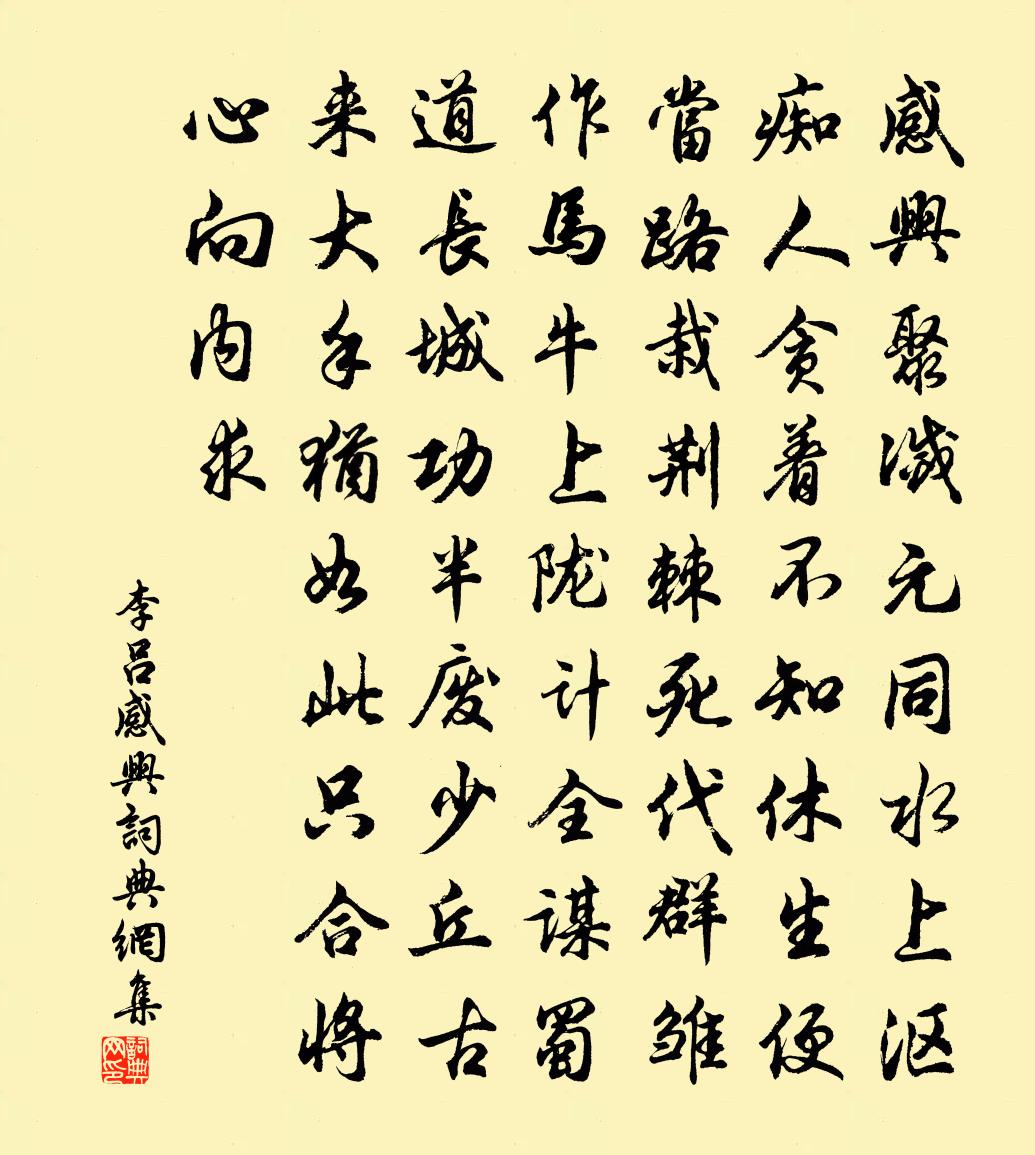 感興聚滅元同水上漚
痴人貪着不知休生便
當路栽荆棘死代群雏
作馬牛上陇计全谋蜀
道長城功半废少丘古
来大手猶如此只合將
心向内求
李吕感興詞典網集
詞典网印